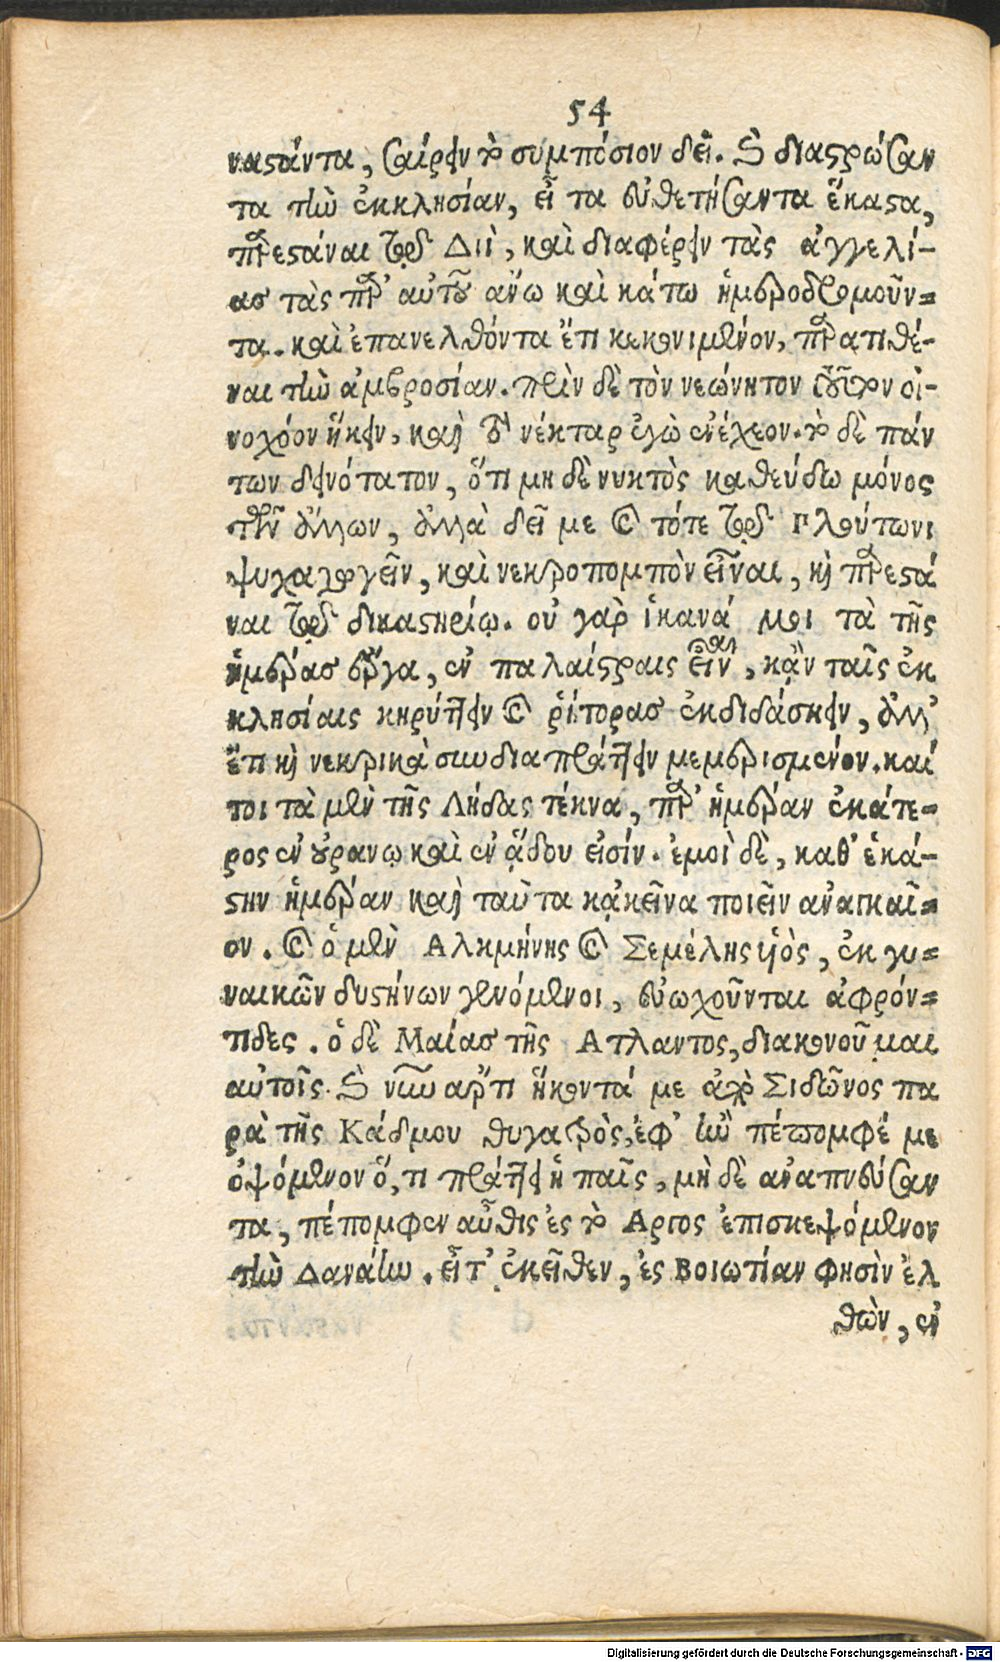 54
ναστάντα, σαίρειν τὸ συμπόσιον δεῖ. καὶ διαστρώσαν
τα τὴν ἐκκλησίαν, εἶ τα εὐθετήσαντα ἕκαστα,
παρεστάναι τῷ Διὶ, καὶ διαφέρειν τὰς ἀγγελί-
ας τὰς παρ' αὐτοῦ ἄνω καὶ κάτω ἡμεροδρομοῦν=
τα. καὶ ἐπανελθόντα ἔτι κεκονιμένον, παρατιθέ-
ναι τὴν ἀμβροσίαν. πρὶν δὲ τὸν νεώνητον τοῦτον οἰ-
νοχόον ἥκειν, καὶ τὸ νέκταρ ἐγὼ ἐνέχεον. τὸ δὲ πάν
των δεινότατον, ὅτι μη δὲ νυκτὸς καθεύδω μόνος
τῶν ἄλλων, ἀλλὰ δεῖ με καὶ τότε τῷ Πλούτωνι
ψυχαγωγεῖν, καὶ νεκροπομπὸν εἶναι, καὶ παρεστά
ναι τῷ δικαστηρίῳ. οὐ γὰρ ἱκανά μοι τὰ τῆς
ἡμέρας ἔργα, ἐν παλαίστραις εἶναι, κᾂν ταῖς ἐκ
κλησίαις κηρύττειν καὶ ῥήτορας ἐκδιδάσκειν, ἀλλ'
ἔτι καὶ νεκρικὰ συνδιαπράττειν μεμερισμένον. καί
τοι τὰ μὲν τῆς Λήδας τέκνα, παρ' ἡμέραν ἑκάτε=
ρος ἐν οὐρανῷ καὶ ἐν ᾅδου εἰσίν. ἐμοὶ δὲ, καθ' ἑκά-
στην ἡμέραν καὶ ταῦτα κᾀκεῖνα ποιεῖν ἀναγκαῖ=
ον. καὶ ὁ μὲν Αλκμήνης καὶ Σεμέλης υἱὸς, ἐκ γυ=
ναικῶν δυστήνων γενόμενοι, εὐωχοῦνται ἀφρόν=
τιδες. ὁ δὲ Μαίας τῆς Ατλαντος, διακονοῦμαι
αὐτοῖς. καὶ νῦν ἄρτι ἥκοντά με ἀπὸ Σιδῶνος πα
ρὰ τῆς Κάδμου θυγατρὸς, ἐφ' ἣν πέπομφέ με
ὀψόμενον ὅ, τι πράττει ἡ παῖς, μὴ δὲ ἀναπνεύσαν
τα, πέπομφεν αὖθις ἐς τὸ Αργος ἐπισκεψόμενον
τὴν Δανάην. εἶτ' ἐκεῖθεν, ἐς Βοιωτίαν φησὶν ἐλ
θὼν, ἐν
Digitalisierung gefördert durch die Deutsche Forschungsgemeinschaft - DFG